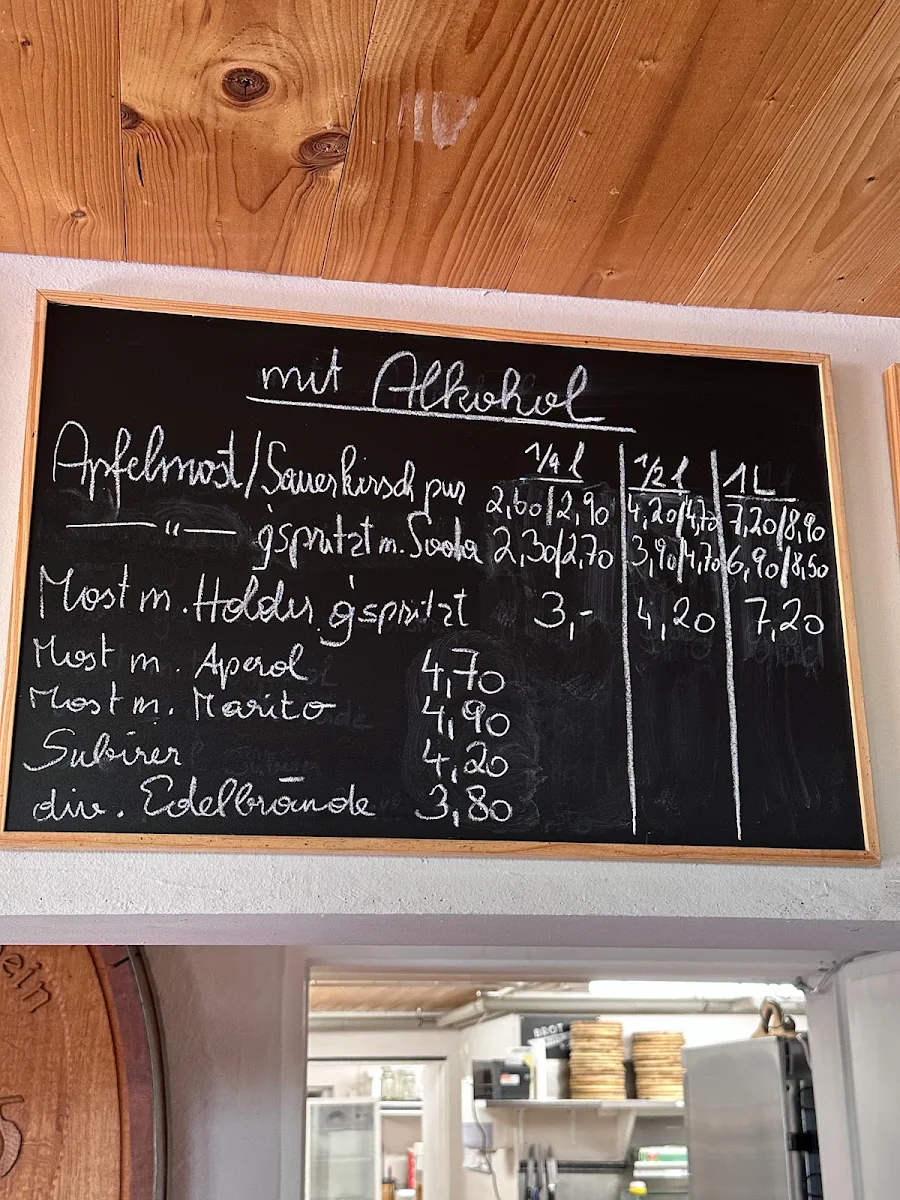 mit Alkohol
1/4 l 1/2 l 1L
Apfelmost/Sauerkirsch pur 2,60/2,90 4,20/4,70 7,20/8,90
—— " —— gspritzt m. Soda 2,30/2,70 3,90/4,70 6,90/8,50
Most m. Holder gspritzt 3,- 4,20 7,20
Most m. Aperol 4,70
Most m. Marito 4,90
Subirer 4,20
div. Edelbrände 3,80
BROT